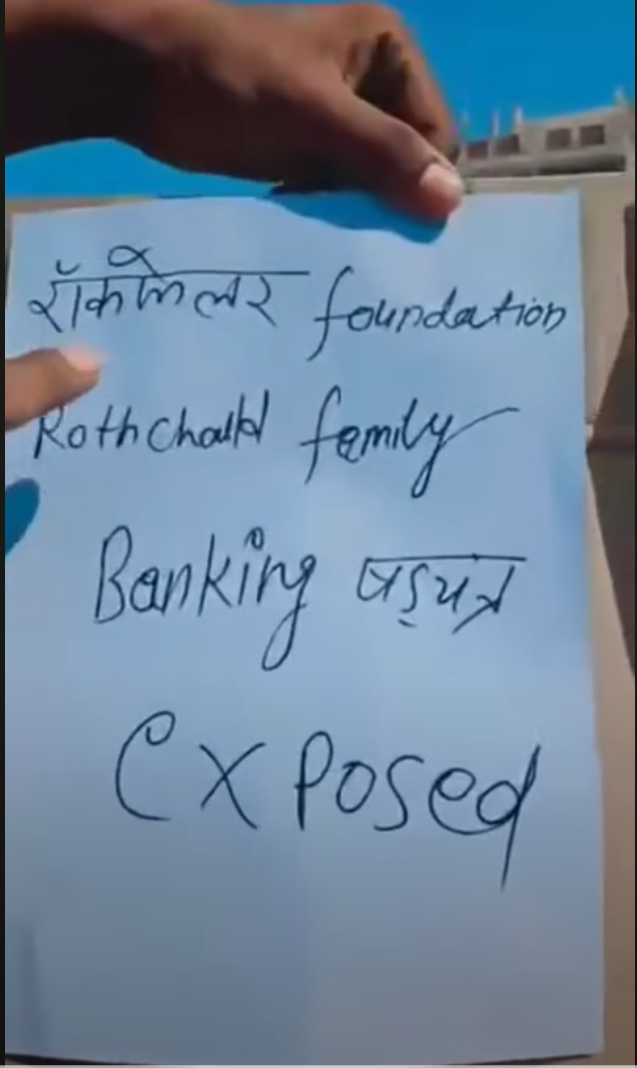 रॉकफेलर foundation
Rothchald family
Banking षड़यत्र
Exposed